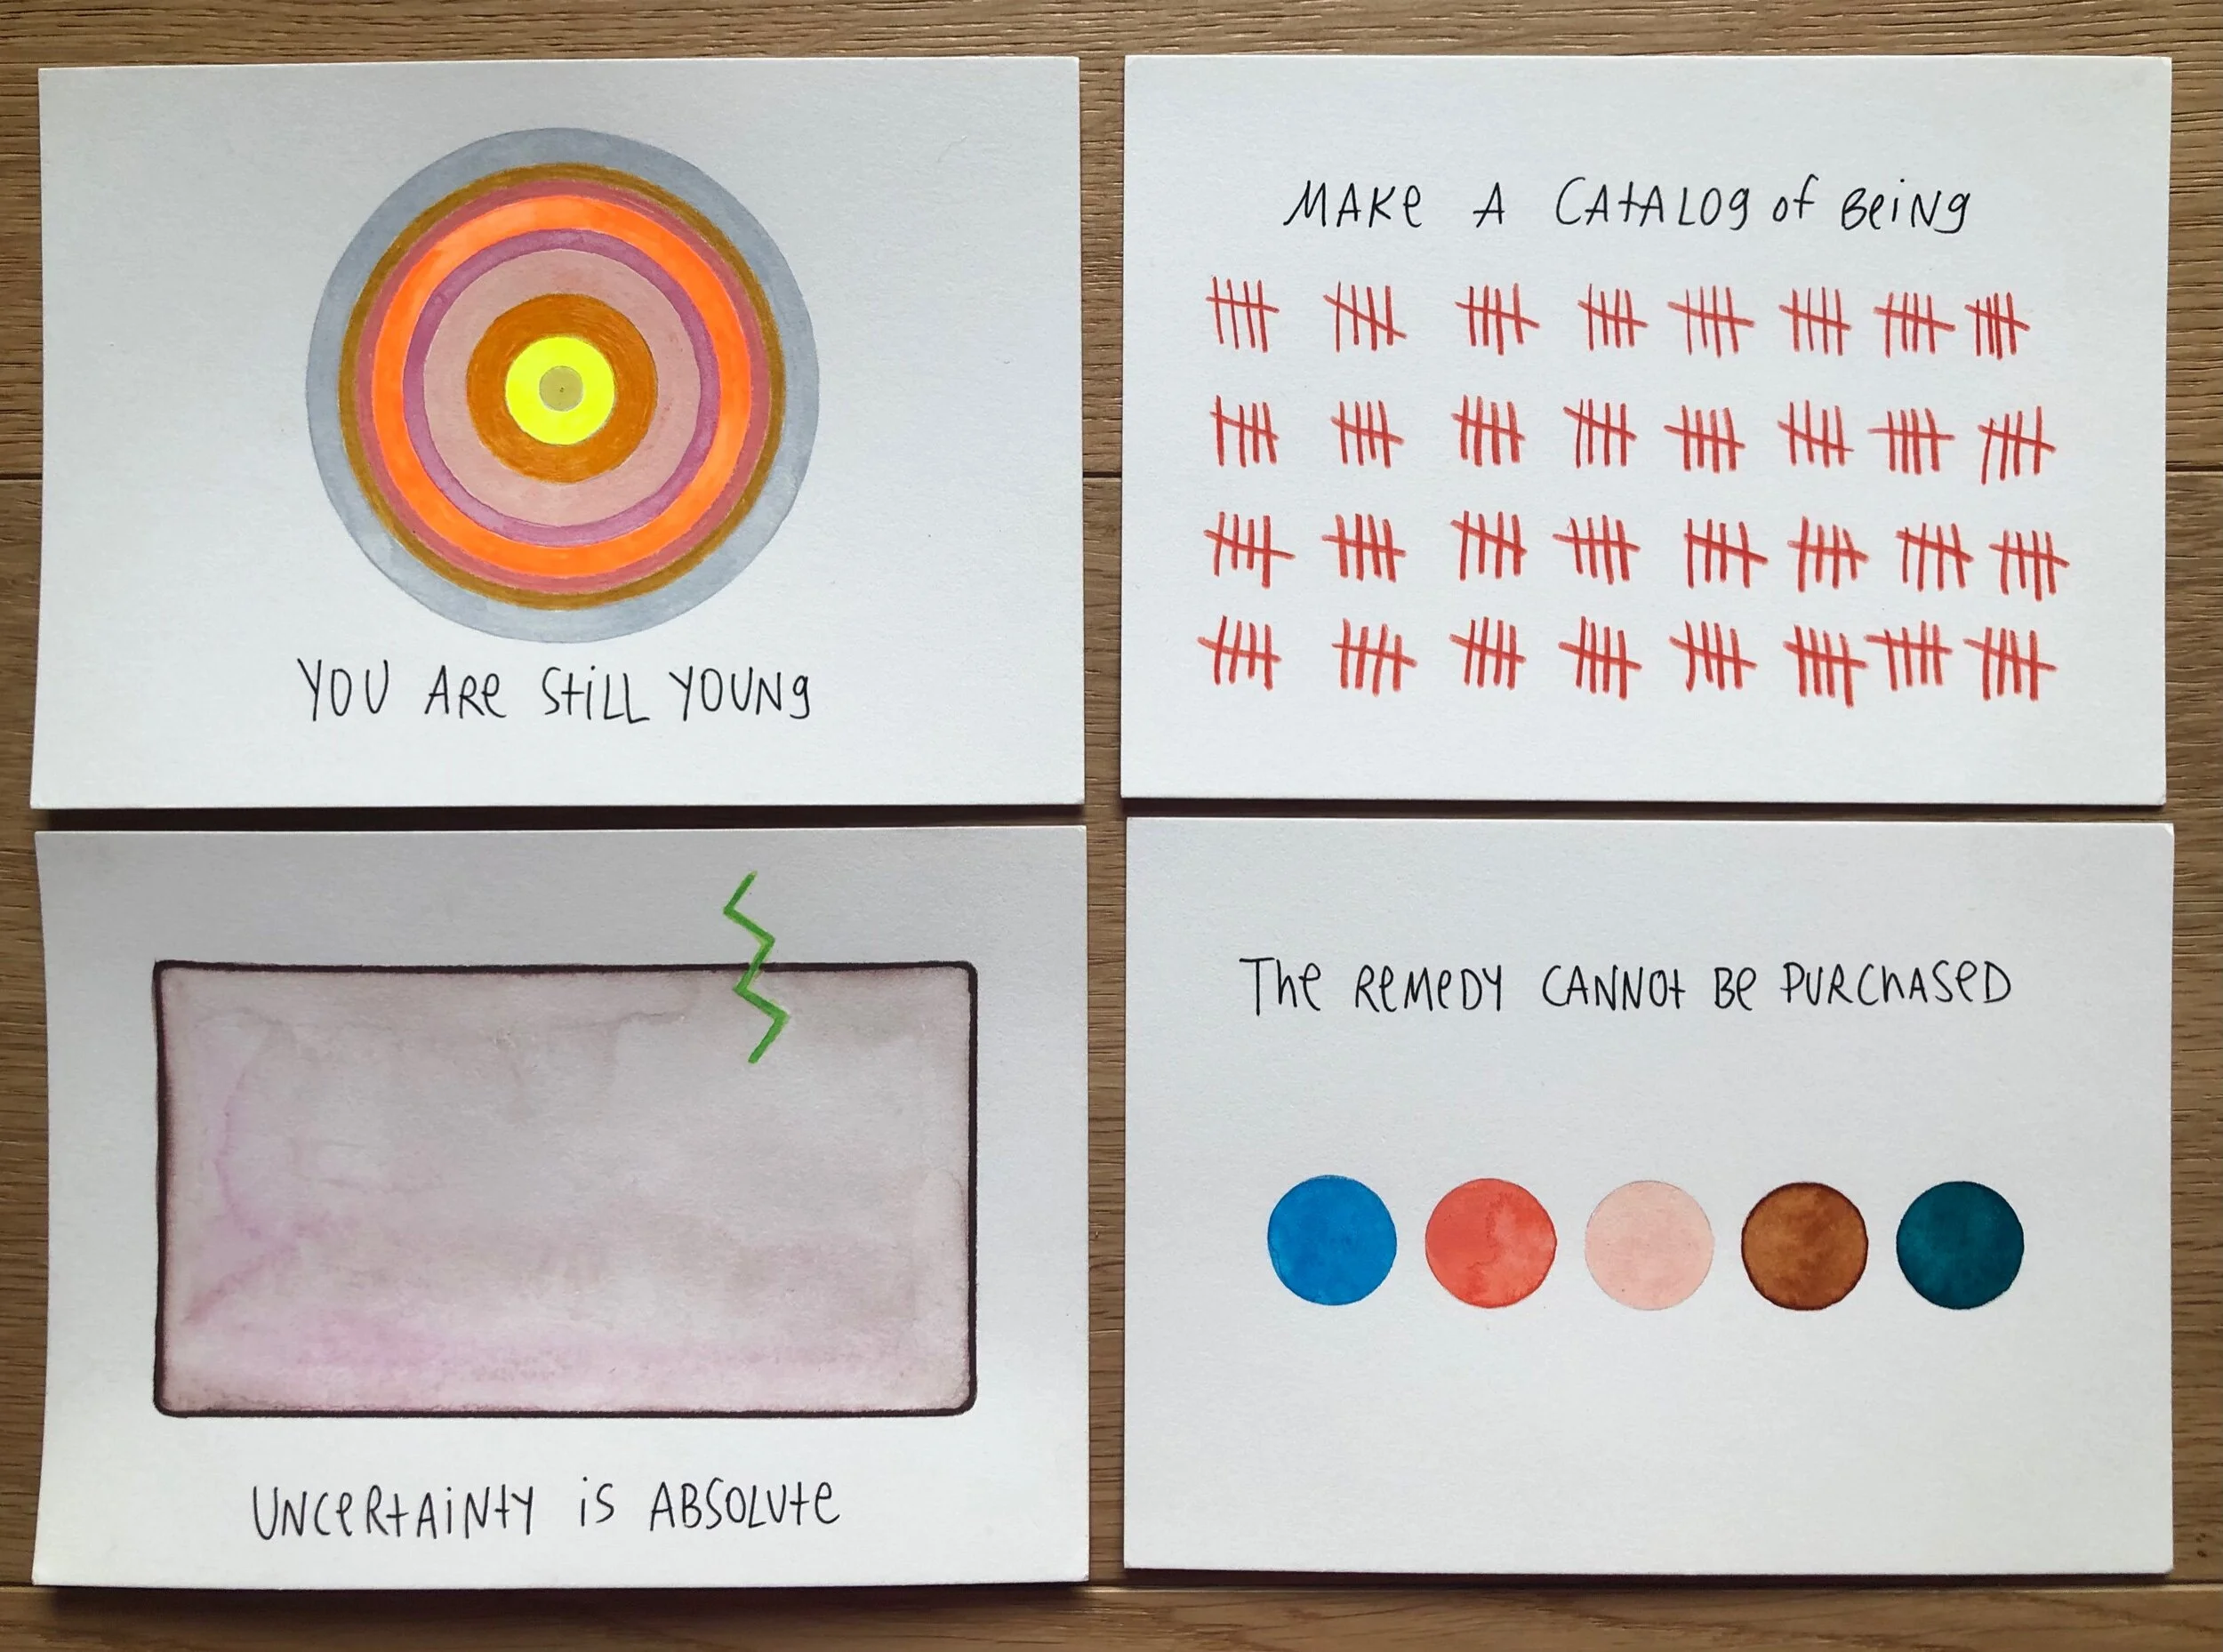 YOU ARe StiLL YOUNg
MAKe A CAtALOg of BeiNg
UNCeRtAiNtY iS ABSOLUte
The ReMeDY CANNOt Be PURChASeD